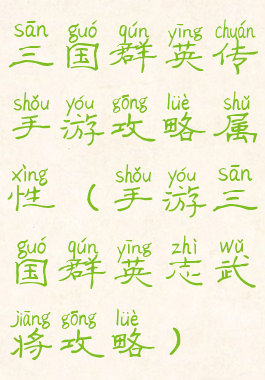 sān guó qún yīng chuán
三国群英传
shǒu yóu gōng lüè shǔ
手游攻略属
xìng shǒu yóu sān
性（手游三
guó qún yīng zhì wǔ
国群英志武
jiāng gōng lüè
将攻略）